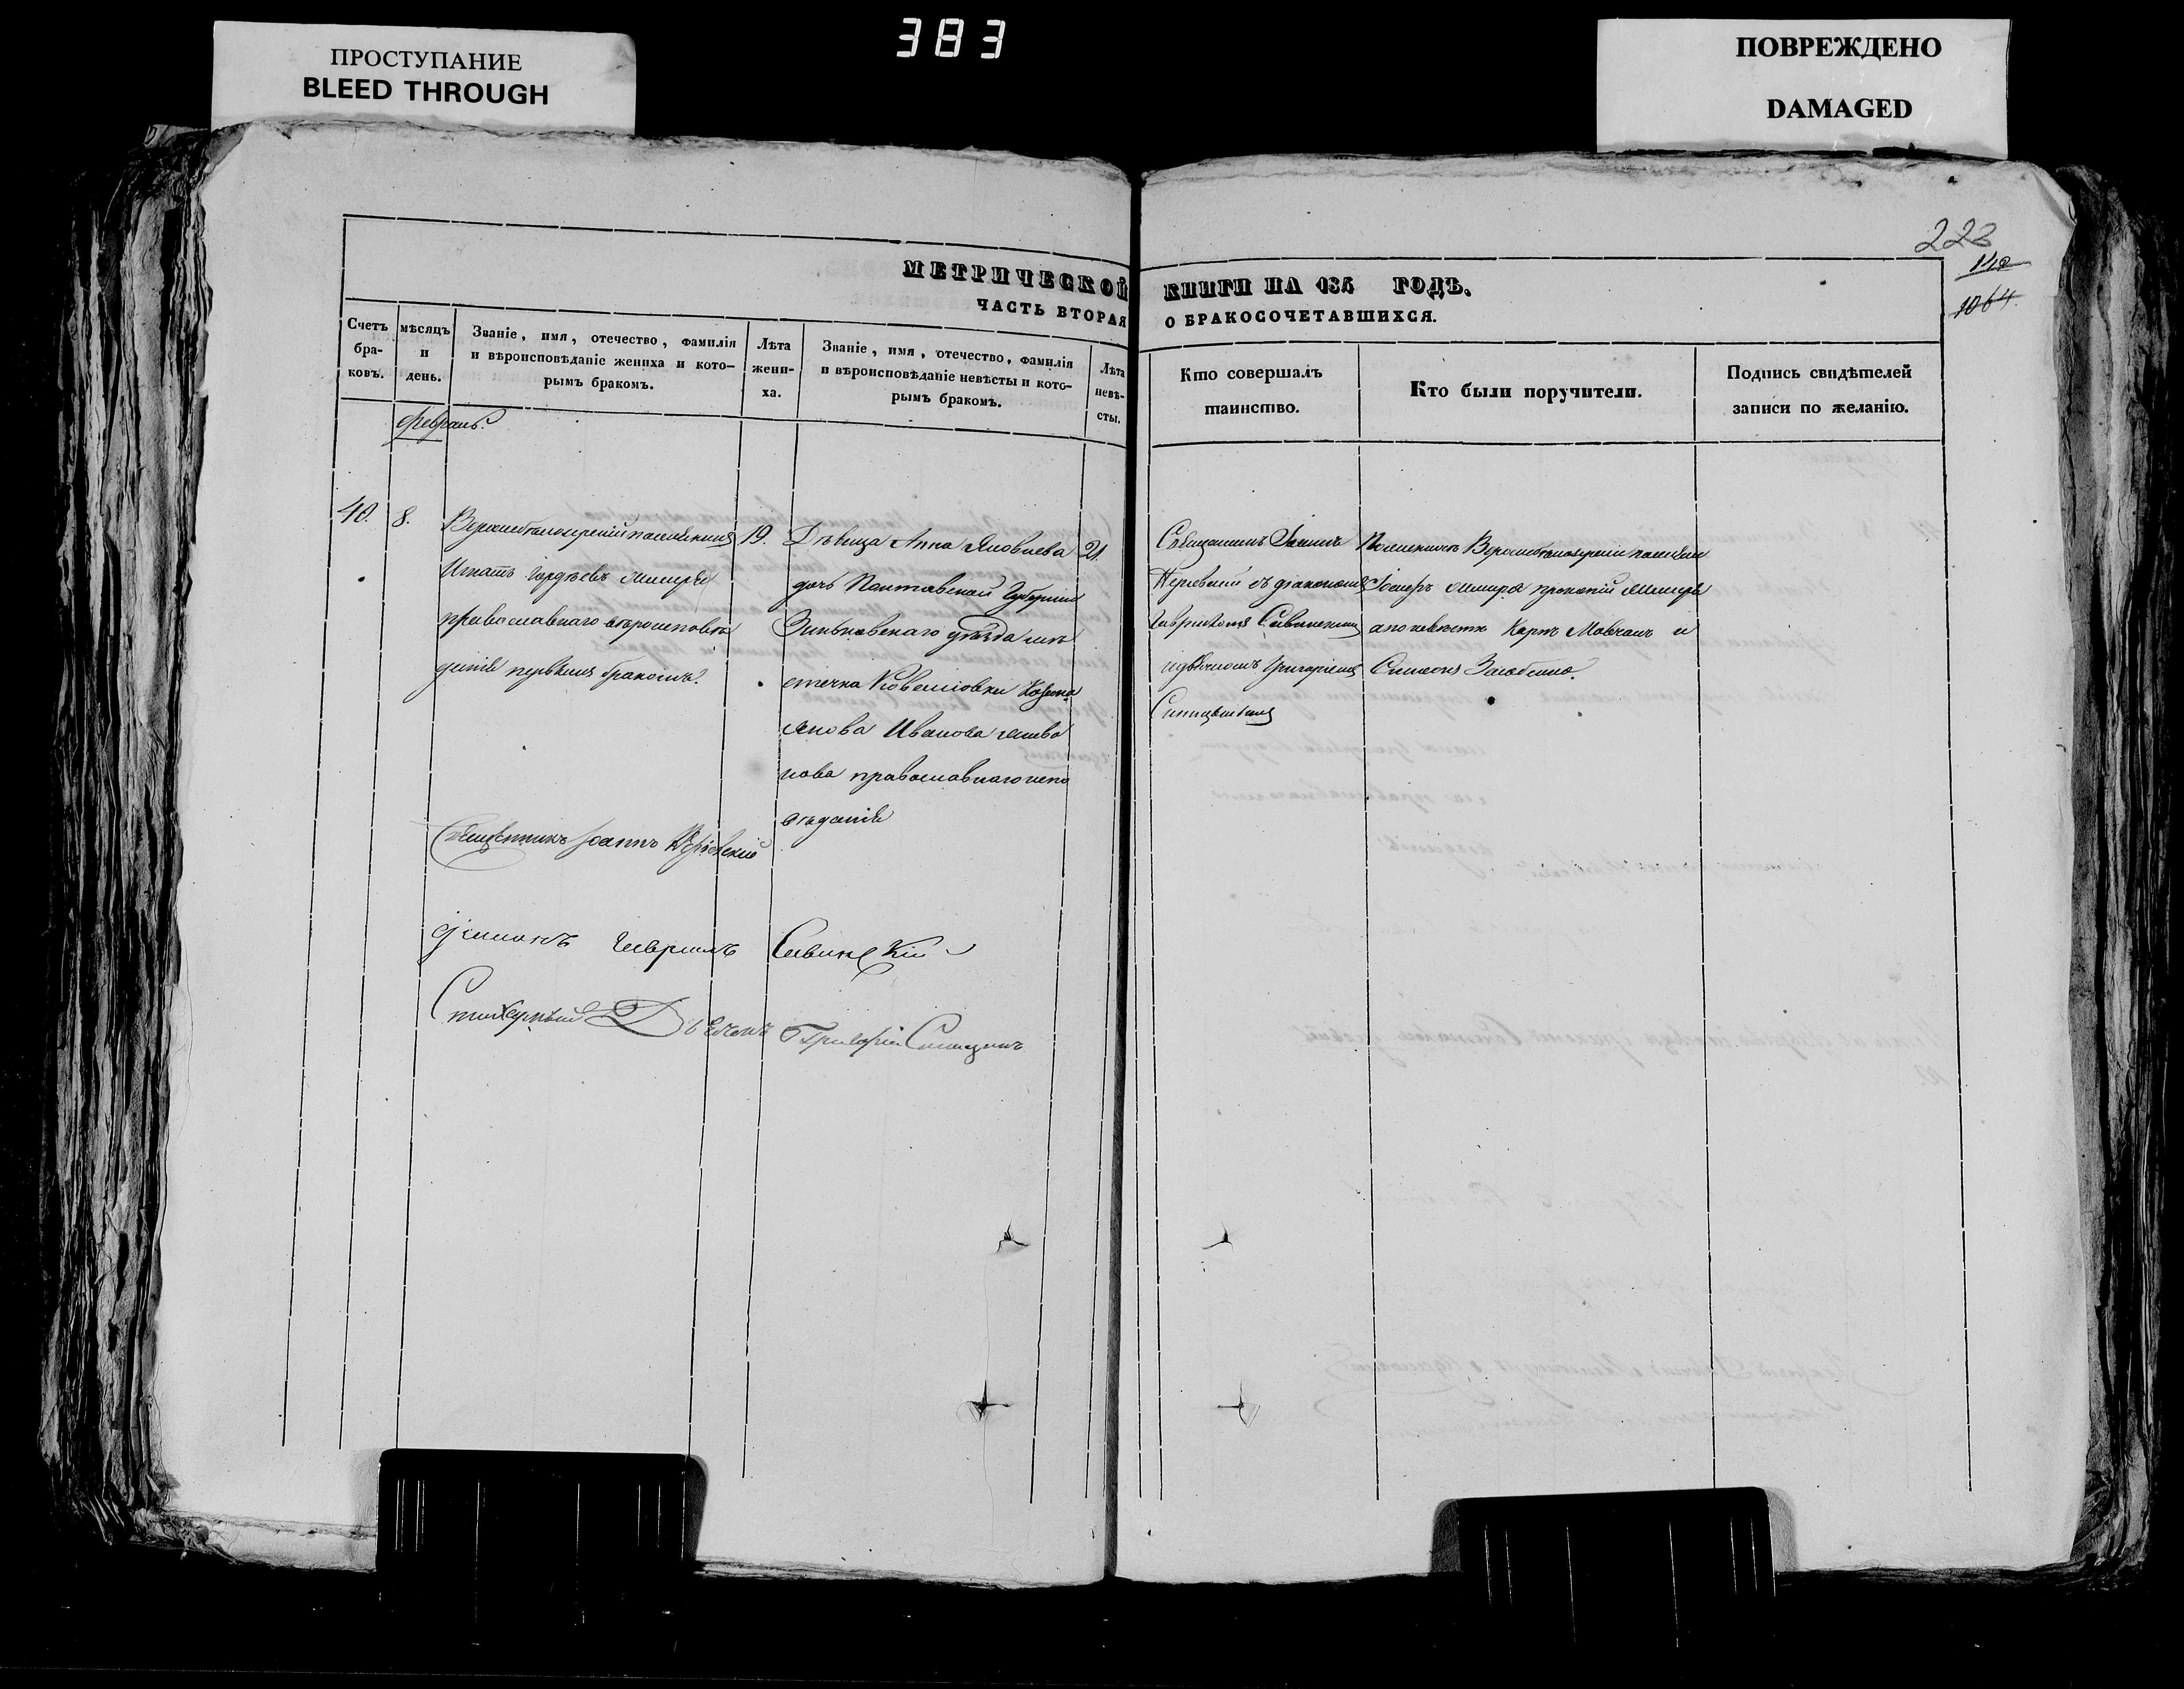 383
ПРОСТУПАНИЕ
BLEED THROUGH
ПОВРЕЖДЕНО
DAMAGED
223
112
1064.
МЕТРИЧЕСКОЙ
ЧАСТЬ ВТОРАЯ
КНИГИ НА 185 ГОДЪ.
О БРАКОСОЧЕТАВШИХСЯ.
Счетъ
бра-
ковъ.
мѣсяцъ
и
день.
Званіе, имя, отечество, фамилія
и вѣроисповѣданіе жениха и кото-
рымъ бракомъ.
Лѣта
жени-
ха.
Званіе, имя, отечество, фамилія
и вѣроисповѣданіе невѣсты и кото-
рымъ бракомъ.
Лѣта
невѣ-
сты.
Кто совершалъ
таинство.
Кто были поручители.
Подпись свидѣтелей
записи по желанію.
февраль.
40.
8.
Игнатъ Гордѣевъ
православнаго вѣроисповѣ
данія первымъ бракомъ.
19.
Дѣвица Анна Яковлева
дочь Полтавской Губерніи
Зиньковскаго уѣзда мѣ
стечка Ковалювки Козака
Якова Иванова
православнаго испо
вѣданія
21
Священникъ Іоаннъ
съ діакономъ
Гавріиломъ Савинскимъ
и дьячкомъ Григоріемъ
Синицынымъ
По женихѣ
Прокопій
а по невѣстѣ Карпъ Мовчанъ и
Симеонъ
Священникъ Іоаннъ
діаконъ Гавріилъ Савинскій
Стихарный Дьячокъ Григорій Синицынъ